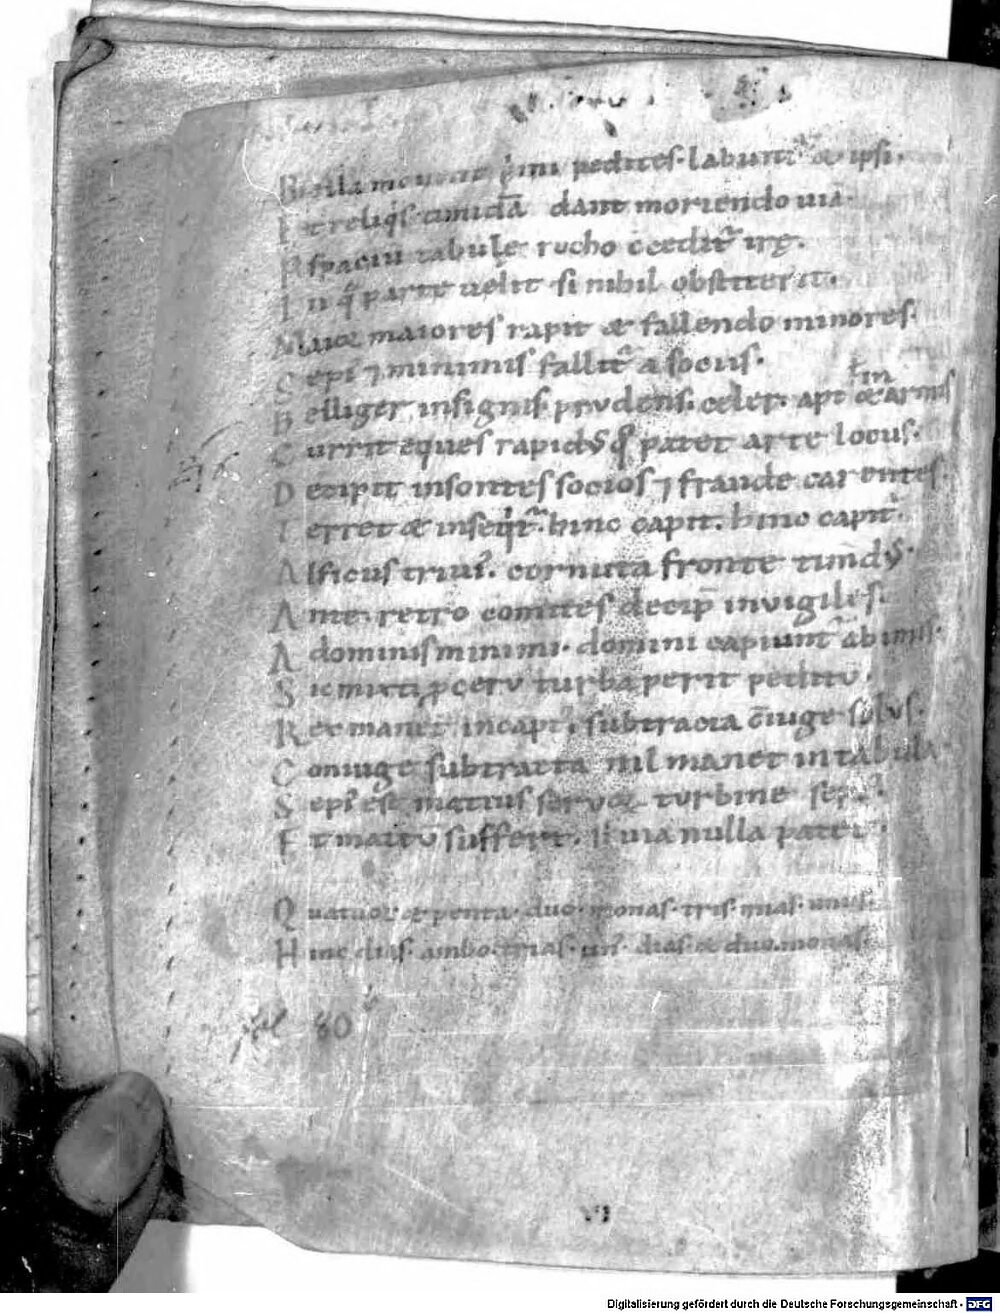 Bella mouent p̍mi pedites. labunt᷑ & ipsi.
Et reliq̍s timidā dant moriendo uiā.
P spaciū tabulę rocho cedit᷑ ire.
In q̄ parte uelit si nihil obstiterit.
Maiores rapit & fallendo minores.
Sepe ⁊ minimis fallit᷑ a sociis.
ł in
Belliger insignis. prudens. celer. apt' & armis
Currit eques rapidꝰ q̄ patet arte locus.
Decipit insontes socios ⁊ fraude carentes.
Terret & inseq̍t᷑. hinc capit. hinc capit᷑.
Alficus triui'. cornuta fronte timdꝰ.
Ante retro comites decip̄ inuigiles.
A dominis minimi. domini capiunt᷑ ab imis.
Sic mixti pceru turba perit peditu.
Rex manet incapt'. subtracta ꝯiuge solus.
Coniuge subtracta nil manet in tabula
Sepi' est mattus turbine
Et mattū suffert. si uia nulla patet.
Quatuor & penta. duo. monas. tris. mias. unus.
Hinc dias. ambo. trias. un'. dias. & duo. monas.
fol 80
VI
Digitalisierung gefördert durch die Deutsche Forschungsgemeinschaft - DFG